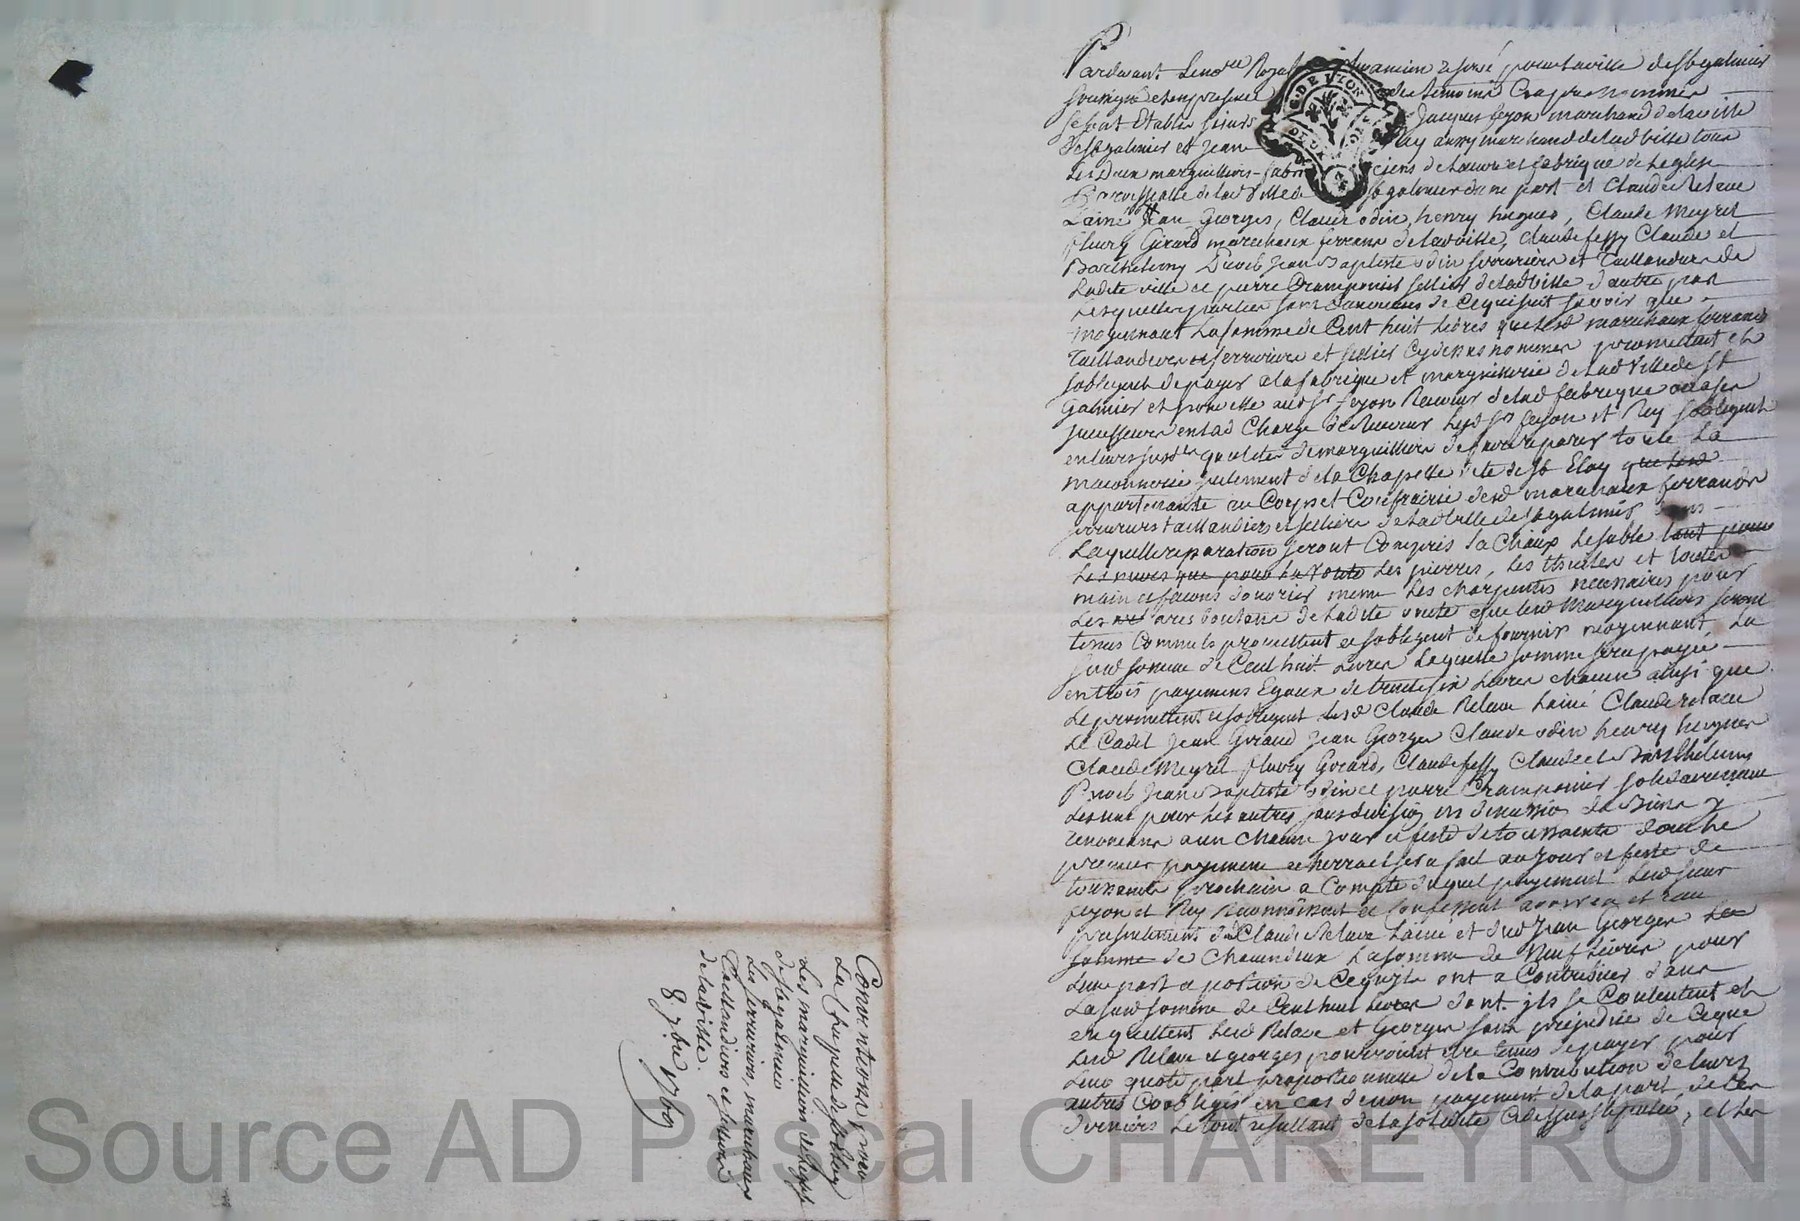 Pardevant Le no.re Royal
soussigné et en presence des temoins Cy apres nommés
se sont Etablis sieurs Jacques feyon marchand de la ville
de st galmier et Jean Rey aussy marchand de lad ville tous
Les Deux marguilliers fabriciens de Lauvre et fabrique de Leglise
Parroissialle de lad Ville de st galmier dune part et Claude Relave
L'ainé Jean Georges, Claude odin, henry hugues, Claude Meyret
fleury Girard marechaux ferrans de lad ville, claude fessy Claude et
Barthelemy Jean Baptiste odin serruriers et Taillandiers de
Ladite ville et pierre Cramponier sellier de lad ville d'autre part
Lesquelles parties sont Convenues de Ce qui suit savoir que
moyennant La somme de Cent huit Livres que Lesd marechaux ferrans
Taillandiers et serruriers et sellier Cy dessus nommés promettent et
sobligent de payer a la fabrique et marguillerie de lad Ville de St
Galmier et pour elle aud sr feyon Receveur de lad fabrique ou a ses
successeurs en lad Charge de Receveur Lesd srs feyon et Rey sobligent
en leurs susd qualités de marguilliers de faire reparer toute La
maconnerie seulement de la Chapelle de st Eloy que Lesd
appartenante au Corps et Confrairie desd marechaux ferrands
serruriers taillandiers et selliers de lad ville de st galmier dans
Laquelle reparation seront Compris La Chaux Le sable tant pour
Les murs que pour La Voute Les pierres, Les thuiles et toutes
main et facons d'ouvrier meme Les charpentes necessaires pour
Les arcs boutans de Ladite voute que lesd Marguilliers seront
tenus Comme ils promettent et sobligent de fournir moyennant La
susd somme de Cent huit Livres Laquelle somme sera payée
en trois payemens Egaux de trente six Livres chacun ainsi que
Le promettent et sobligent Lesd Claude Relave Lainé Claude relave
Le Cadet Jean Giraud Jean Georges Claude odin henry hugues
Claude Meyret fleury Girard, Claude fessy Claude et Barthelemy
Jean Baptiste odin et pierre Cramponier solidairement
Les uns pour Les autres sans division ni discution de Biens y
renoncans a un chacun jour et feste de toussaints dont le
premier payement echerra et sera fait au jour et feste de
toussaints prochain a Compte duquel payement Lesd sieurs
feyon et Rey Reconnoissent et Confessent avoir eu et recu
presentement dud Claude Relave Lainé et dud Jean Georges La
somme de Chacun deux La somme de Neuf Livres pour
Leur part et portion de Ce qu'ils ont a Contribuer dans
La susd somme de Cent huit Livres dont ils se Contentent et
en quittent Lesd Relave et Georges sans prejudice de Ce que
Lesd Relave et georges pourroient etre tenus de payer pour
Leur quote part proportionnelle de la Contribution de leurs
autres Coobligés en cas de non payement de la part de Ces
derniers Le tout resultant de la solidité Cy dessus stipulée, et Les
G. DE LYON
Conventions pour
La Chapelle de st Eloy
Les marguilliers de Leglise
de st galmier
Les serruriers, marechaux
Taillandiers et selliers
de lad ville.
8 7bre 1769
Source AD Pascal CHAREYRON